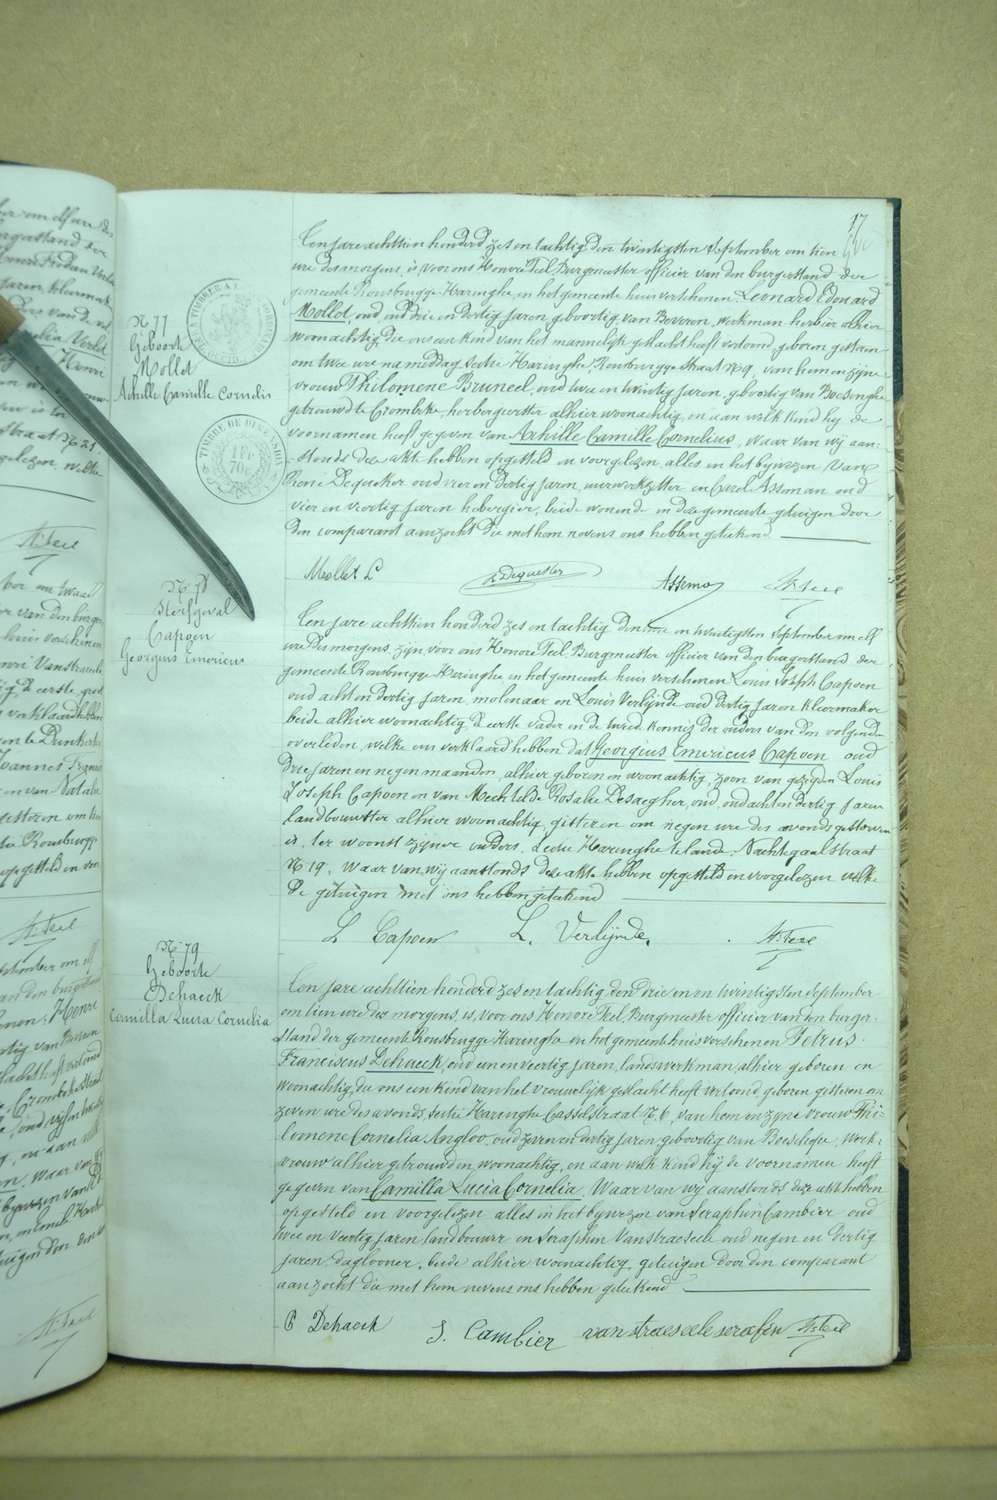 17
N 77
Geboorte
Mollet
Achille Camille Cornelis
TIMBRE DE DIMENSION
1 FR
70 C
Een jare achttien honderd zes en tachtig den twintigsten September om tien
ure des morgens, is voor ons Honoré Teel, Burgmeester officier van den burgerstand der
gemeente Rousbrugge Haringhe, in het gemeente huis verschenen Leonard Edouard
Mollet, oud oud drie en dertig jaren geboortig van Beveren, werkman herbier alhier
woonachtig, die ons een kind van het mannelijk geslacht heeft vertoond, geboren gisteren
om twee ure namiddag sectie Haringhe Rousbrugge straat N 9, van hem en zijne
vrouw Philomene Bruneel, oud twee en twintig jaren, geboortig van Boesinghe
getrouwd te Crombeke, herbergierster alhier woonachtig, en aan welk kind hij de
voornamen heeft gegeven van Achille Camille Cornelius. Waar van wij aan:
stonds deze akte hebben opgesteld en voorgelezen, alles in het bijwezen van
René Dequeker oud vier en dertig jaren, uurwerkzetter en Carel Asseman oud
vier en veertig jaren herbergier, beide wonende in deze gemeente getuigen door
den comparant aanzocht die met hem nevens ons hebben geteekend
Mollet L R Dequeker Asseman H. Teel
N 78
Sterfgeval
Capoen
Georgius Emericus
Een jare achttien honderd zes en tachtig den een en twintigsten September om elf
ure des morgens, zijn voor ons Honoré Teel, Burgmeester officier van den burgerstand der
gemeente Rousbrugge Haringhe in het gemeente huis verschenen Louis Joseph Capoen
oud acht en dertig jaren, molenaar en Louis Verlijnde oud dertig jaren kleermaker
beide alhier woonachtig, de eerste vader en de tweede kennis der ouders van den volgende
overleden, welke ons verklaard hebben dat Georgius Emericus Capoen oud
drie jaren en negen maanden, alhier geboren en woonachtig, zoon van gezegden Louis
Joseph Capoen en van Mechtilde Rosalie Desaegher, oud, oud acht en dertig jaren
landbouwster alhier woonachtig, gisteren om negen ure des avonds gestorven
is, ter woonst zijner ouders, sectie Haringhe te lande, Nachtegaalstraat
N 19. Waar van wij aanstonds deze akte hebben opgesteld en voorgelezen welke
de getuigen met ons hebben geteekend
L Capoen L. Verlijnde. H. Teel
N 79
Geboorte
Dehaeck
Camilla Lucia Cornelia
Een jare achttien honderd zes en tachtig den drie en en twintigsten September
om tien ure des morgens, is, voor ons Honoré Teel, Burgmeester officier van den burger:
stand der gemeente Rousbrugge Haringhe en het gemeentehuis verschenen Petrus
Franciscus Dehaeck, oud een en veertig jaren, landswerkman, alhier geboren en
woonachtig die ons een kind van het vrouwelijk geslacht heeft vertoond, geboren gisteren om
zeven ure des avonds sectie Haringhe Casselstraat N. 6, van hem en zijne vrouw Phi-
lomene Cornelia Angloo, oud zeven en dertig jaren, geboortig van Boeschepe, werk-
vrouw alhier getrouwd en woonachtig, en aan welk kind hij de voornamen heeft
gegeven van Camilla Lucia Cornelia. Waar van wij aanstonds deze akte hebben
opgesteld en voorgelezen alles in het bijwezen van Seraphin Cambier oud
twee en veertig jaren landbouwer en Seraphin Vanstraeseele oud negen en dertig
jaren daglooner, beide alhier woonachtig, getuigen door den comparant
aanzocht die met hem nevens ons hebben geteekend
P Dehaeck S. Cambier vanstraeseele serafin H. Teel